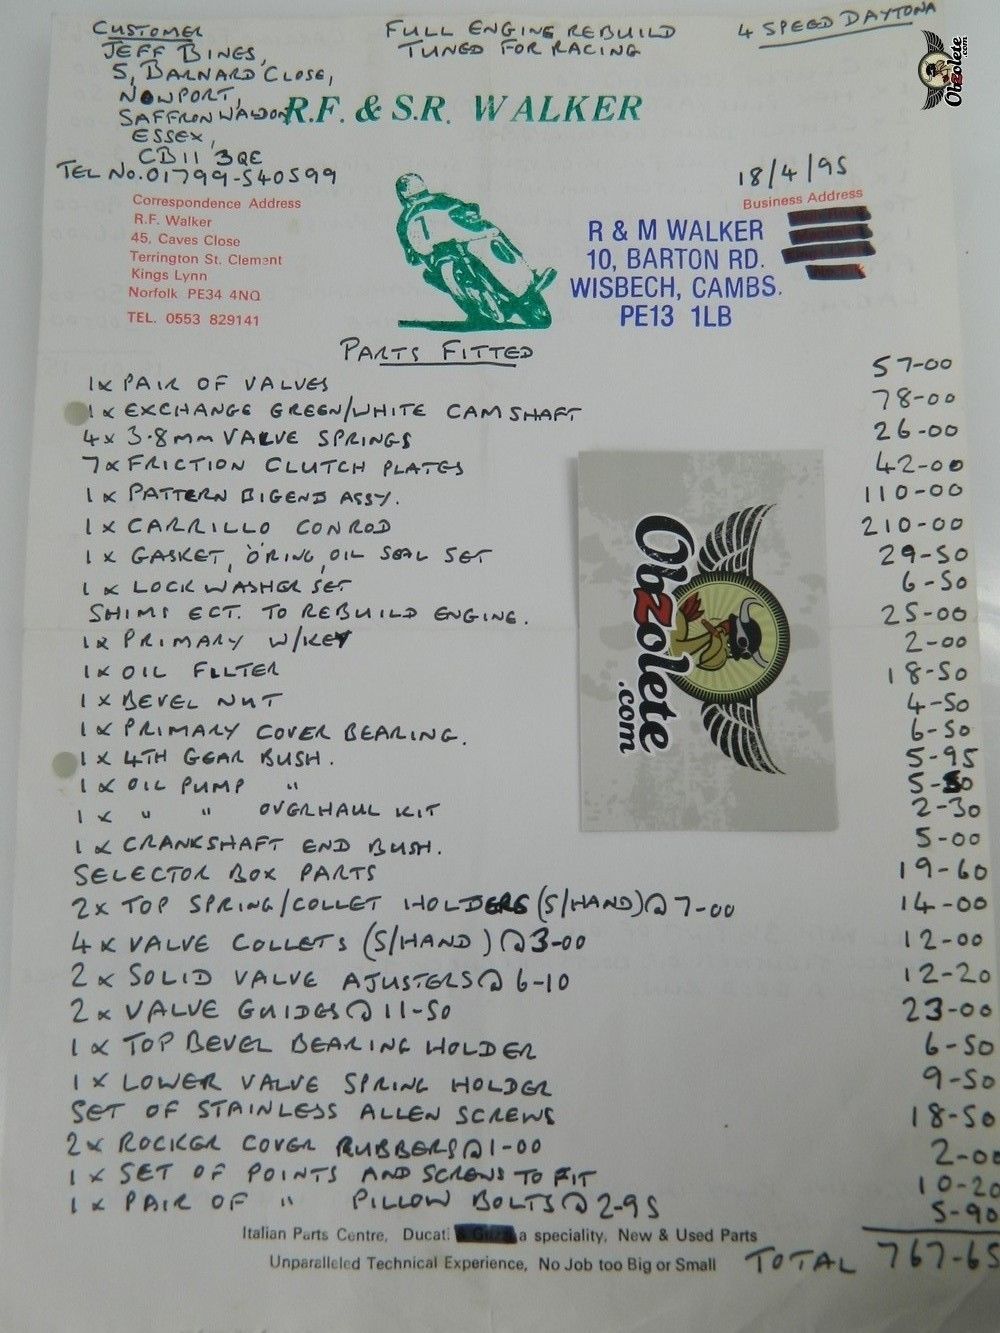 CUSTOMER
JEFF BINES,
5, BARNARD CLOSE,
NEWPORT,
SAFFRON WALDON
ESSEX,
CB11 3QE
TEL NO. 01799-540599
FULL ENGINE REBUILD
TUNED FOR RACING
4 SPEED DAYTONA
Obzolete.com
R.F. & S.R. WALKER
18/4/95
Correspondence Address
R.F. Walker
45, Caves Close
Terrington St. Clement
Kings Lynn
Norfolk PE34 4NQ
TEL. 0553 829141
Business Address
R & M WALKER
10, BARTON RD.
WISBECH, CAMBS.
PE13 1LB
PARTS FITTED
1x PAIR OF VALVES 57-00
1x EXCHANGE GREEN/WHITE CAMSHAFT 78-00
4x 3.8mm VALVE SPRINGS 26-00
7x FRICTION CLUTCH PLATES 42-00
1x PATTERN BIGEND ASSY. 110-00
1x CARRILLO CONROD 210-00
1x GASKET, 'O'RING, OIL SEAL SET 29-50
1x LOCK WASHER SET 6-50
SHIMS ECT. TO REBUILD ENGINE. 25-00
1x PRIMARY W/KEY 2-00
1x OIL FILTER 18-50
1x BEVEL NUT 4-50
1x PRIMARY COVER BEARING. 6-50
1x 4TH GEAR BUSH. 5-95
1x OIL PUMP " 5-50
1x " " OVERHAUL KIT 2-30
1x CRANKSHAFT END BUSH. 5-00
SELECTOR BOX PARTS 19-60
2x TOP SPRING/COLLET HOLDERS (S/HAND) @ 7-00 14-00
4x VALVE COLLETS (S/HAND) @ 3-00 12-00
2x SOLID VALVE AJUSTERS @ 6-10 12-20
2x VALVE GUIDES @ 11-50 23-00
1x TOP BEVEL BEARING HOLDER 6-50
1x LOWER VALVE SPRING HOLDER 9-50
SET OF STAINLESS ALLEN SCREWS 18-50
2x ROCKER COVER RUBBERS @ 1-00 2-00
1x SET OF POINTS AND SCREWS TO FIT 10-20
1x PAIR OF " PILLOW BOLTS @ 2-95 5-90
Obzolete
.com
Italian Parts Centre, Ducati a speciality, New & Used Parts
Unparalleled Technical Experience, No Job too Big or Small
TOTAL 767-65